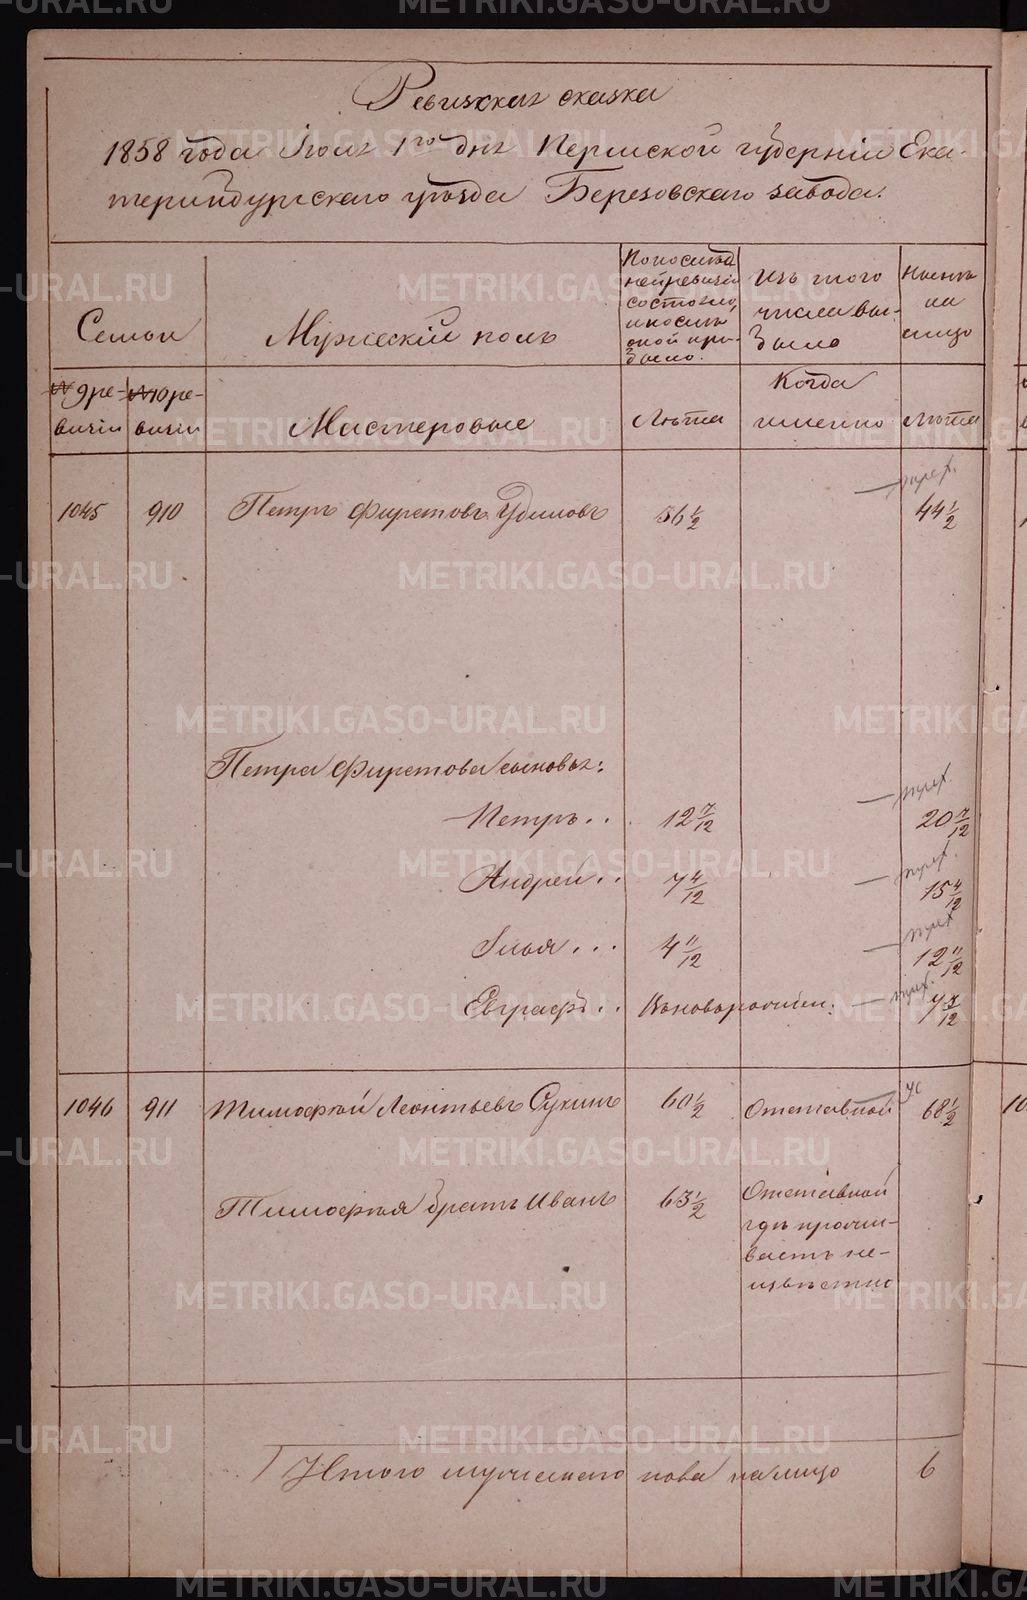 Ревизская сказка
1858 года Июня 1го дня Пермской губерніи Ека-
теринбургскаго уѣзда Березовскаго завода.
Семьи
Мужескій полъ
По послѣд
ней ревизіи
состояло,
и послѣ
оной при-
было.
Изъ того
числа вы-
было
Нынѣ
на
лицо
№ 9 ре-
визіи
№ 10 ре-
визіи
Мастеровые
Лѣта
Когда
именно
Лѣта
1045 910 Петръ Фиретовъ Удиловъ 36 1/2 44 1/2
Петра Фиретова сыновья:
Петръ.. 12 7/12 20 7/12
Андрей.. 7 4/12 15 4/12
Илья... 4 11/12 12 11/12
Евграфъ.. Вновьрожден: 7 7/12
1046 911 Тимофѣй Леонтьевъ Сухинъ 60 1/2 Отставной 68 1/2
Тимофѣя братъ Иванъ 63 1/2 Отставной
гдѣ прожи-
ваетъ не-
извѣстно
Итого мужескаго пола налицо 6
METRIKI.GASO-URAL.RU